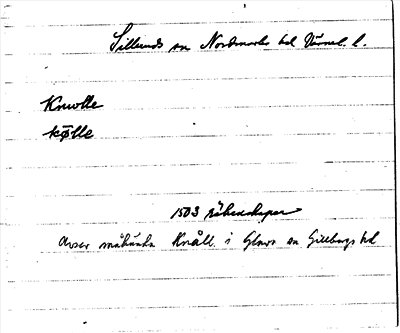 Silleruds sn Nordmarks hd Värml. l.
Knwlle
kølle
1503 räkenskaper
Avser måhända Knåll i Glava sn Gillbergs hd